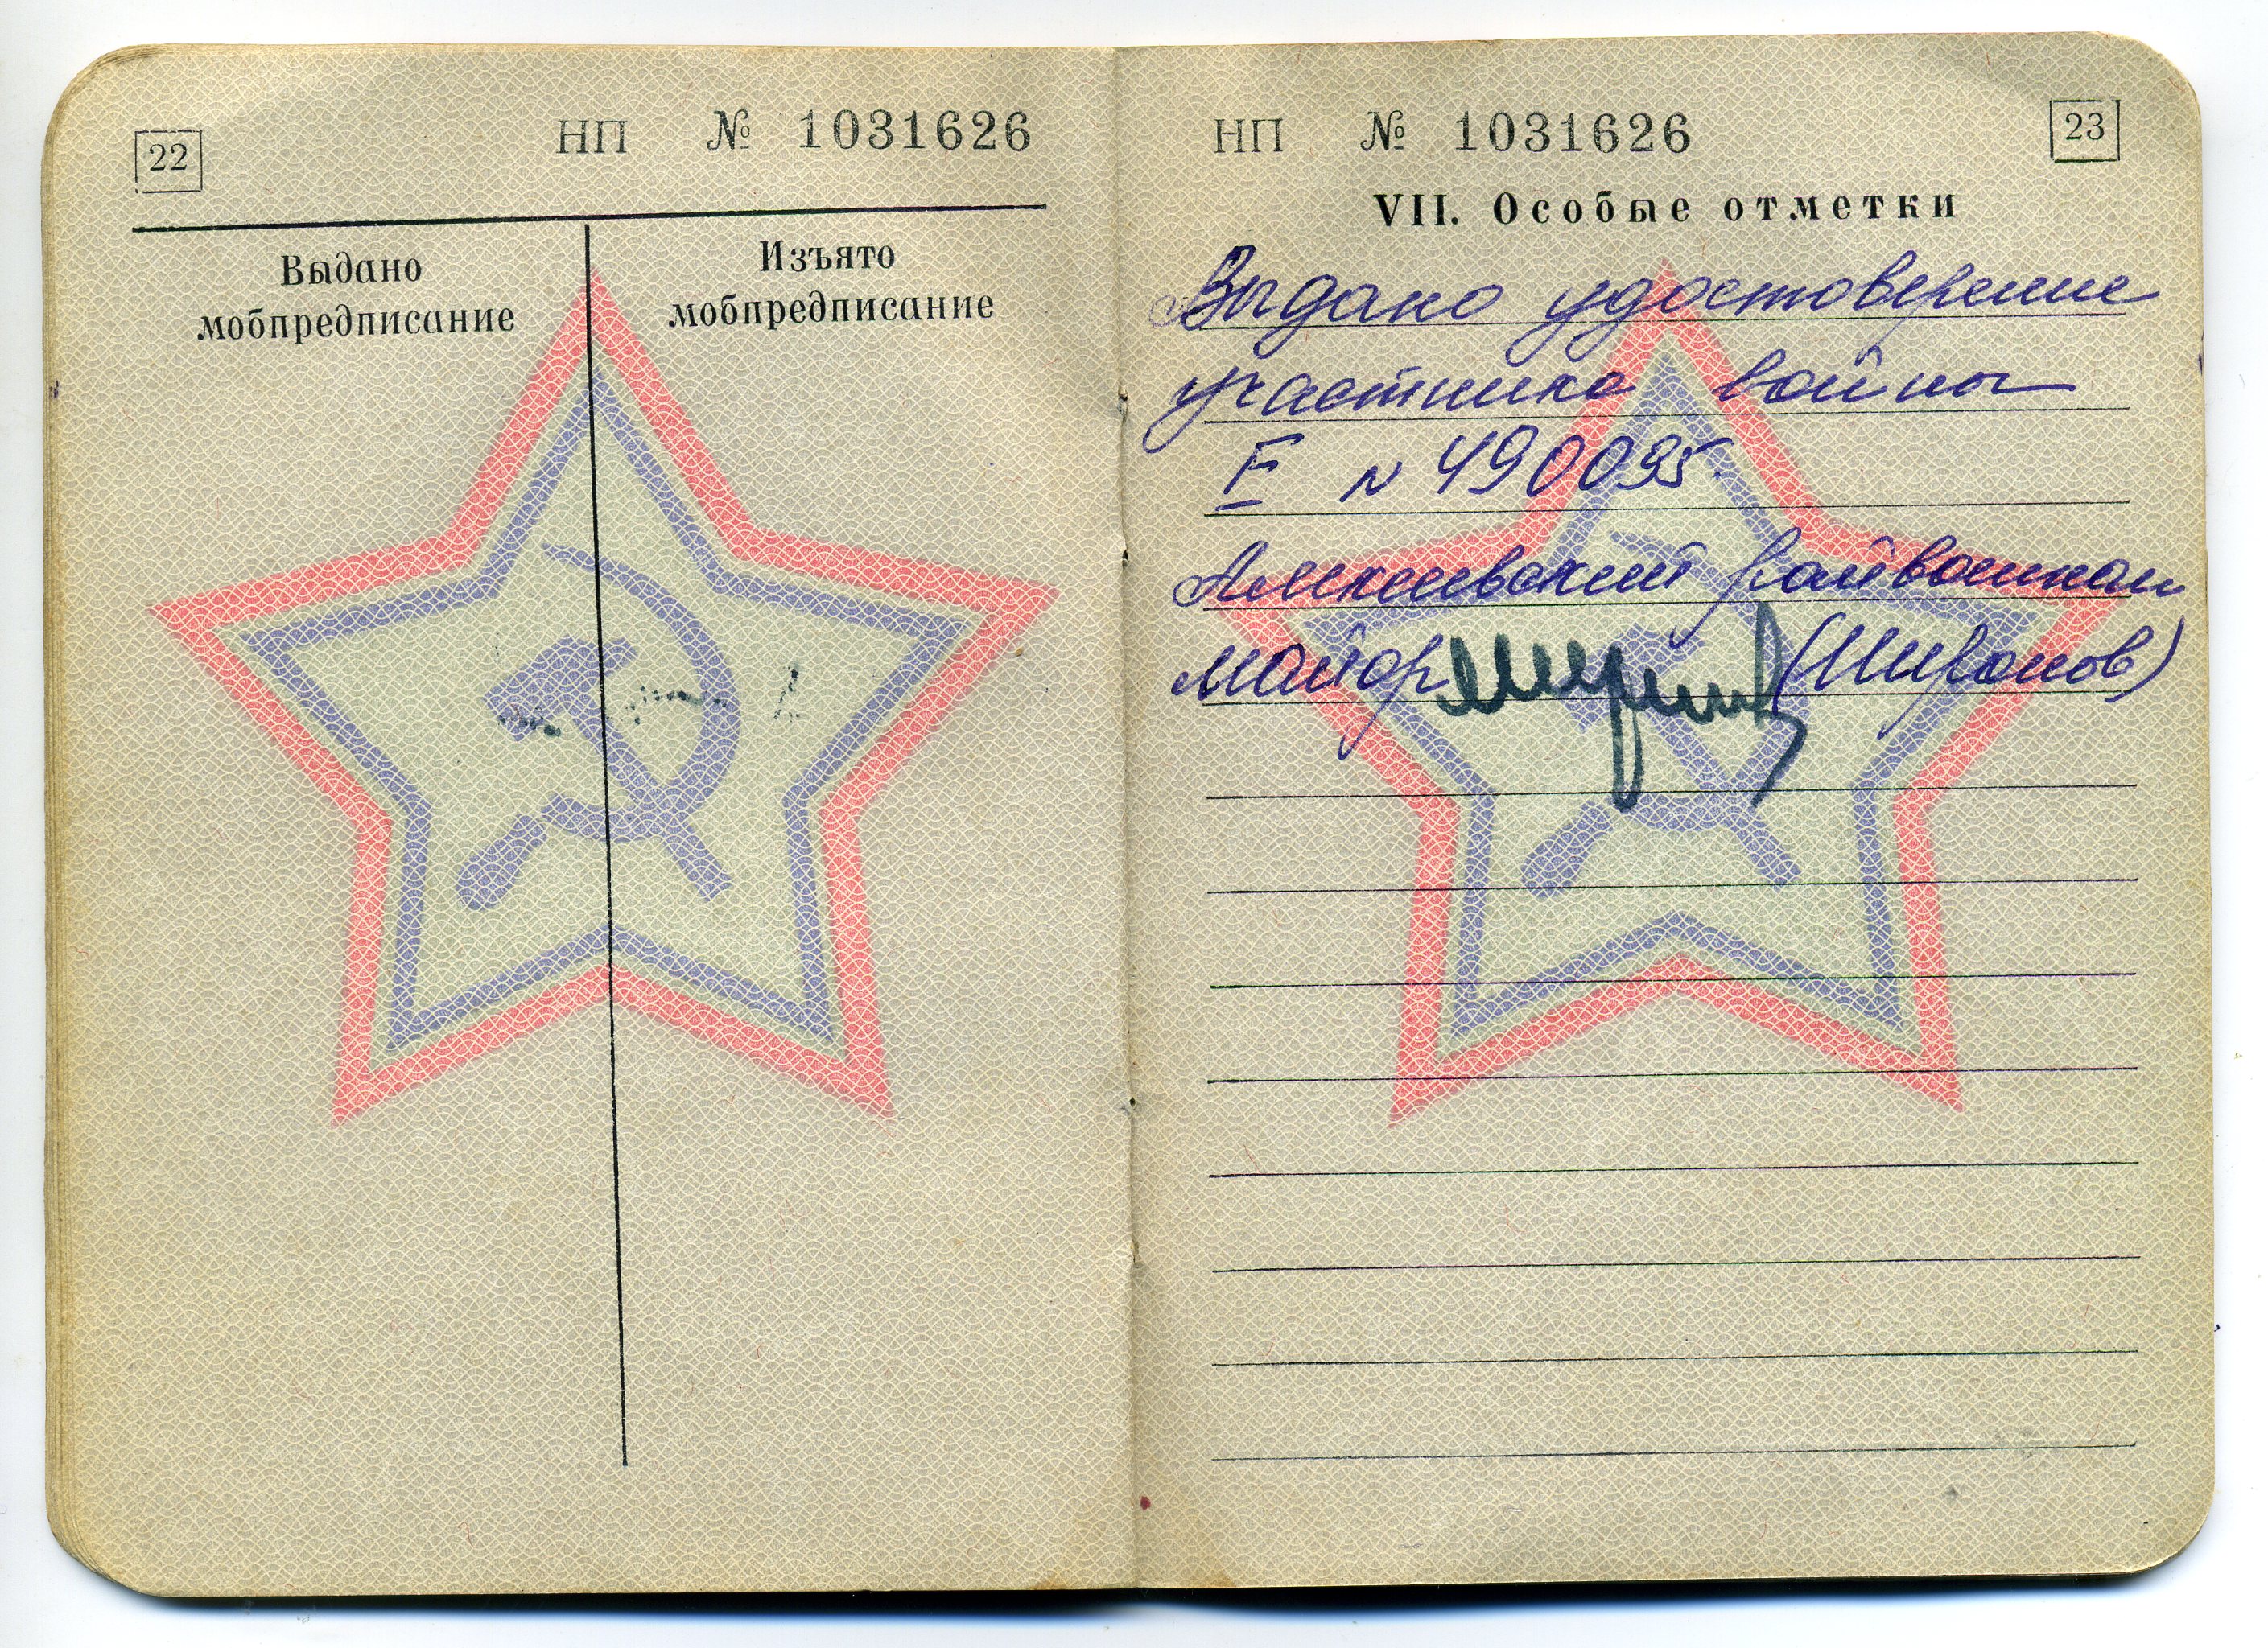 22
НП № 1031626
Выдано мобпредписание
Изъято мобпредписание
НП № 1031626
23
VII. Особые отметки
Выдано удостоверение
участника войны
Е № 490095.
Алексеевский райвоенком
майор (Миронов)